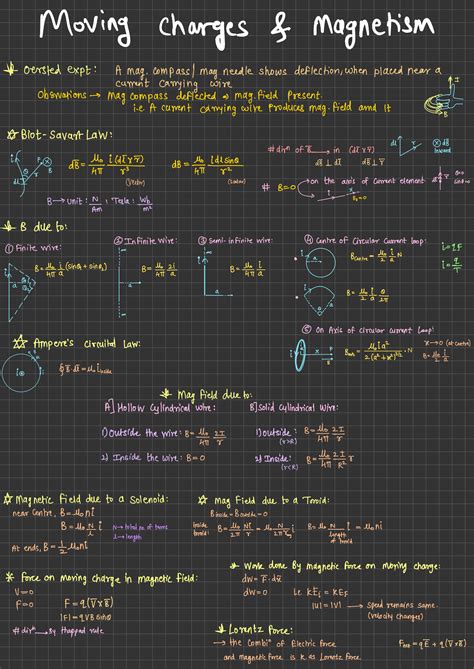 Moving Charges & Magnetism
Oersted expt: A mag. compass/mag needle shows deflection, when placed near a
current carrying wire
Observations → Mag compass deflected ⇒ mag. field present.
i.e A current carrying wire produces mag. field arnd it
I
Biot-Savart Law:
dB̅ = μ₀/4π i(dl̅ x r̅)/r³ (Vector)
dB = μ₀/4π i dl sinθ/r² (scalar)
B → unit: N/Am ; Tesla: Wb/m²
# dirⁿ of B̅ → in (dl̅ x r̅)
dB̅ ⊥ dl̅ dB̅ ⊥ r̅
dB inward
# B=0 on the axis of current element
B₀=0
B due to:
① Finite wire:
B = μ₀/4π i/a (sinθ₁ + sinθ₂)
② Infinite Wire:
B = μ₀/4π 2i/a
③ Semi-infinite wire:
B = μ₀/4π i/a
④ Centre of Circular Current loop:
B centre = μ₀/2 i/a N
i = qf
i = q/T
⑤ On Axis of circular current loop:
B axis = μ₀ia²/2(a²+x²)^3/2 N
x→0 (at centre)
Ampere's Circuital Law:
∮B̅.dl̅ = μ₀ i inside
Mag field due to:
A] Hollow Cylindrical Wire:
1) Outside the wire: B = μ₀/4π 2I/r
2) Inside the wire: B=0
B] Solid Cylindrical Wire:
1) outside: (r>R) B = μ₀/4π 2I/r
2) Inside: (r<R) B = μ₀/4π 2I/R² r
Magnetic Field due to a Solenoid:
near Centre, B = μ₀ni
B = μ₀ N/l i
N → total no of turns
l → length
At ends, B = 1/2 μ₀ni
Mag Field due to a Toroid:
B inside - B outside = 0
inside toroid
length of toroid
Force on moving charge In magnetic field:
V=0
F=0
F = q(V̅xB̅)
|F| = qVB sinθ
# dirⁿ → By thapped rule
Work done By magnetic force on moving charge:
dW = F̅.dx̅
dW=0 i.e KEi = KEf
|U| = |V| → speed remains same.
(velocity changes)
Lorentz Force:
→ the combiⁿ of Electric force
and magnetic force is k.as Lorentz Force.
= qE̅ + q(V̅xB̅)